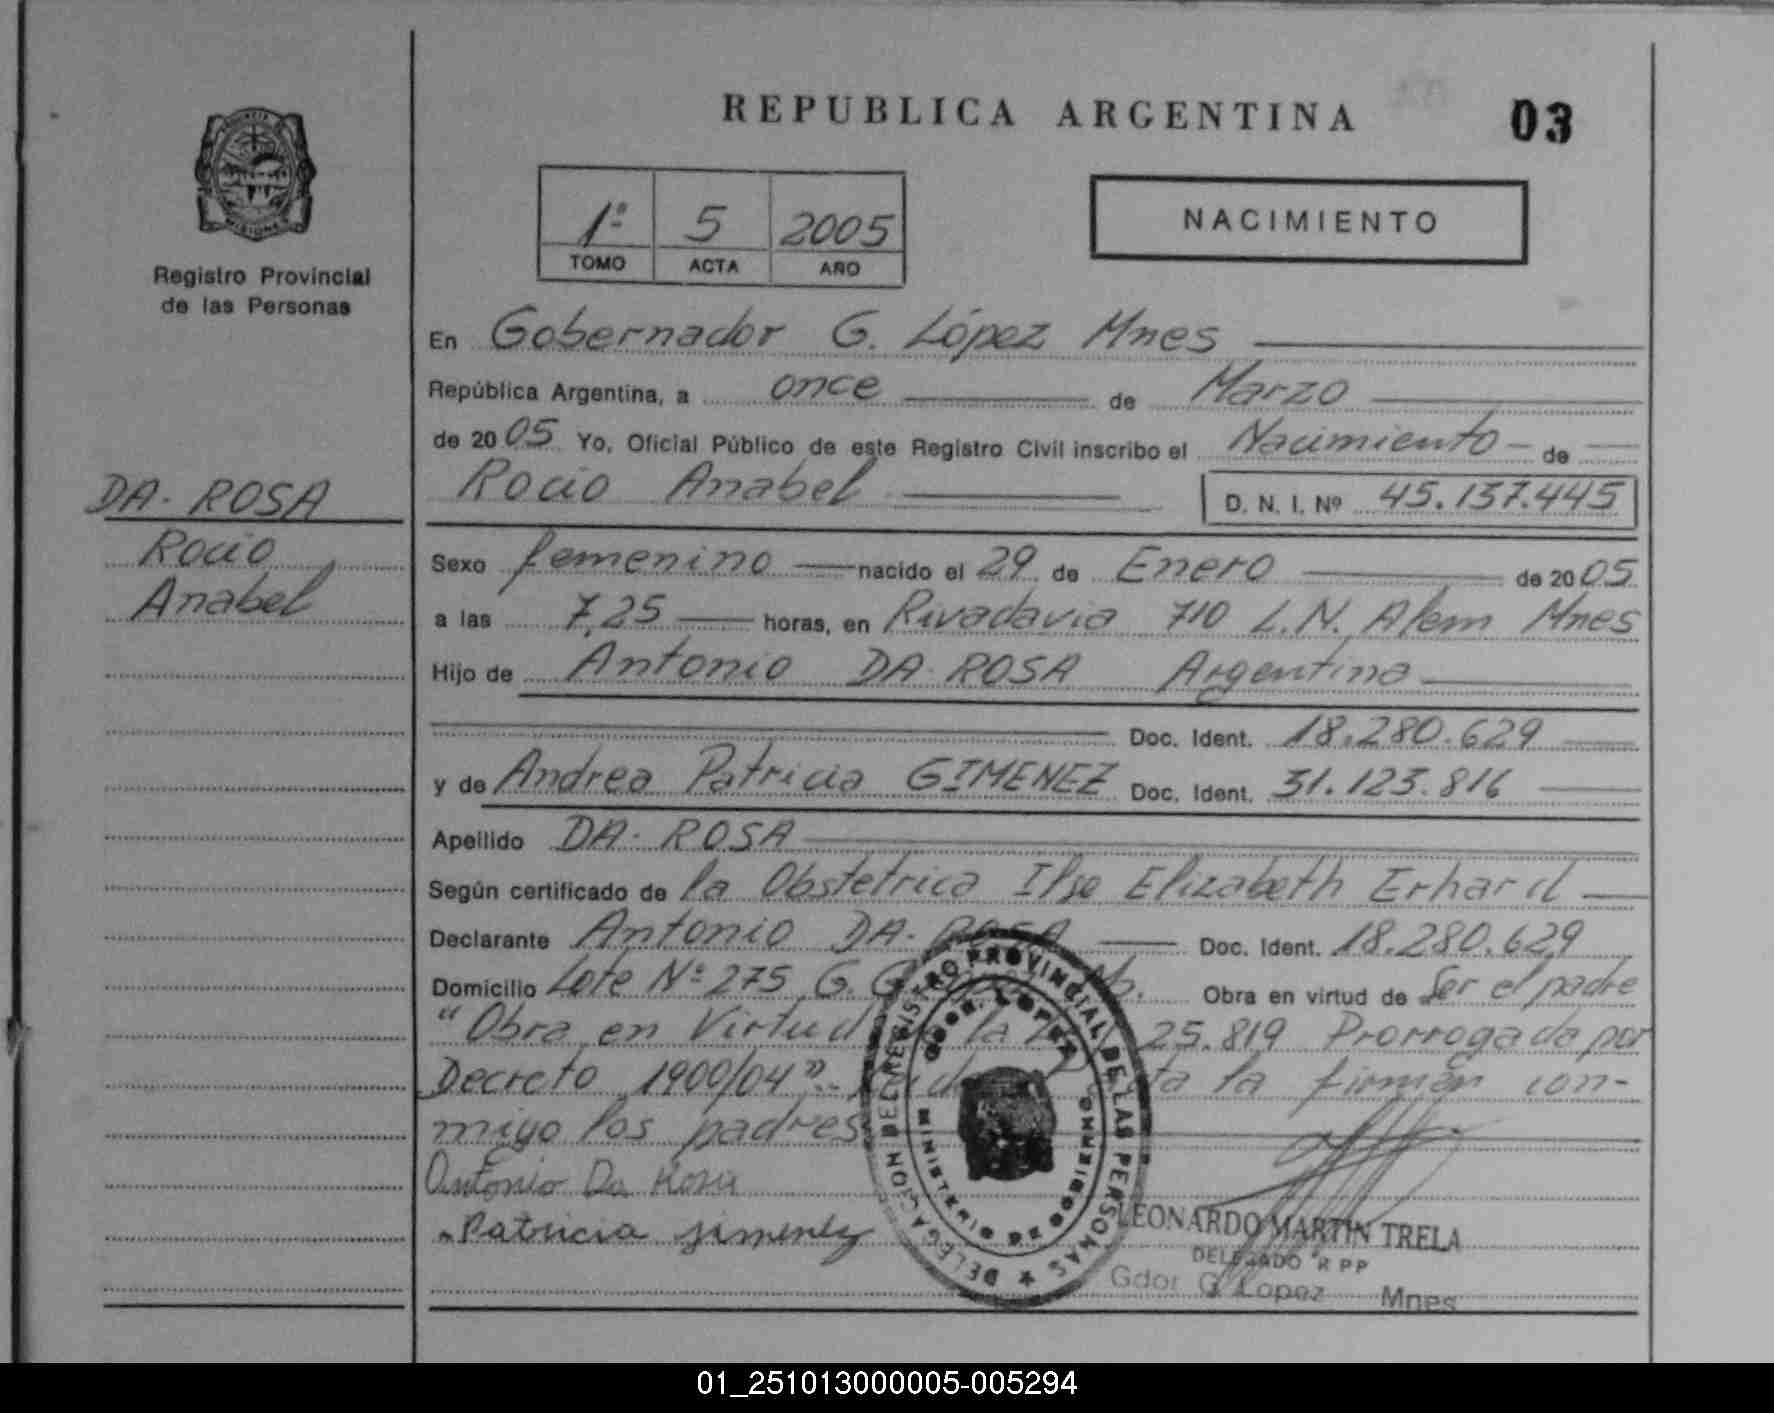 REPUBLICA ARGENTINA
03
1º 5 2005
TOMO ACTA AÑO
NACIMIENTO
Registro Provincial
de las Personas
DA-ROSA
Rocio
Anabel
En Gobernador G. López Mnes
República Argentina, a once de Marzo
de 2005 Yo, Oficial Público de este Registro Civil inscribo el Nacimiento de
Rocio Anabel D. N. I. Nº 45.137.445
Sexo femenino nacido el 29 de Enero de 2005
a las 7,25 horas, en Rivadavia 710 L.N. Alem Mnes
Hijo de Antonio DA-ROSA Argentina
Doc. Ident. 18.280.629
y de Andrea Patricia GIMENEZ Doc. Ident. 31.123.816
Apellido DA-ROSA
Según certificado de la Obstetrica Ilse Elizabeth Erhard
Declarante Antonio DA-ROSA Doc. Ident. 18.280.629
Domicilio Lote Nº 275 G. Obra en virtud de Ser el padre
"Obra en Virtud la 25.819 Prorrogada por
Decreto 1900/04" la firman con-
migo los padres
Antonio Da Rosa
Patricia Jimenez
DELEGACION DEL REGISTRO PROVINCIAL DE LAS PERSONAS
GDOR. LOPEZ
MINISTERIO DE GOBIERNO
LEONARDO MARTIN TRELA
DELEGADO R P P
Gdor G. Lopez Mnes
01_251013000005-005294